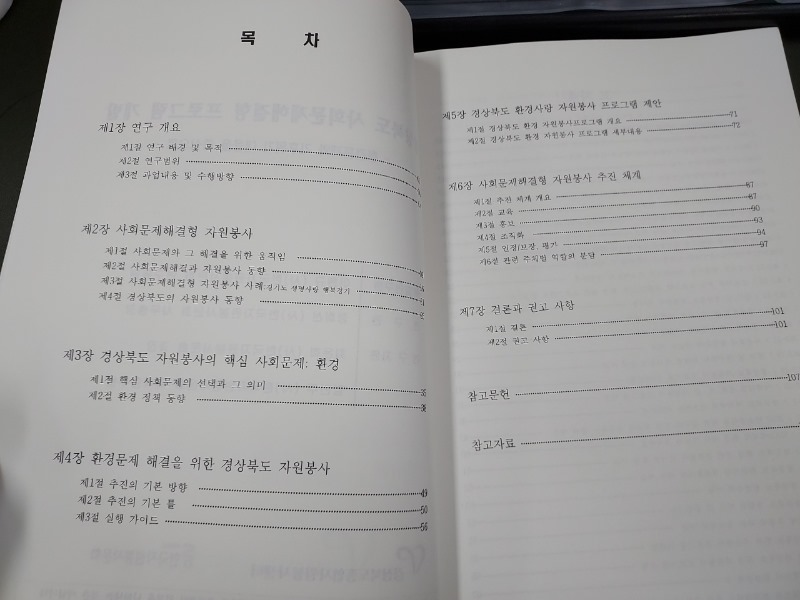 목 차
제1장 연구 개요
제1절 연구 배경 및 목적
제2절 연구범위
제3절 과업내용 및 수행방향
제2장 사회문제해결형 자원봉사
제1절 사회문제와 그 해결을 위한 움직임
제2절 사회문제해결과 자원봉사 동향
제3절 사회문제해결형 자원봉사 사례:경기도 생명사랑
제4절 경상북도의 자원봉사 동향
제3장 경상북도 자원봉사의 핵심 사회문제: 환경
제1절 핵심 사회문제의 선택과 그 의미
제2절 환경 정책 동향
제4장 환경문제 해결을 위한 경상북도 자원봉사
제1절 추진의 기본 방향 49
제2절 추진의 기본 틀 50
제3절 실행 가이드 56
제5장 경상북도 환경사랑 자원봉사 프로그램 제안
제1절 경상북도 환경 자원봉사프로그램 개요 71
제2절 경상북도 환경 자원봉사 프로그램 세부내용 72
제6장 사회문제해결형 자원봉사 추진 체계
제1절 추진 체계 개요 87
제2절 교육 87
제3절 홍보 90
제4절 조직화 93
제5절 인정(보상, 평가 94
제6절 관련 주체별 역할의 분담 97
제7장 결론과 권고 사항
제1절 결론 101
제2절 권고 사항 101
참고문헌 107
참고자료